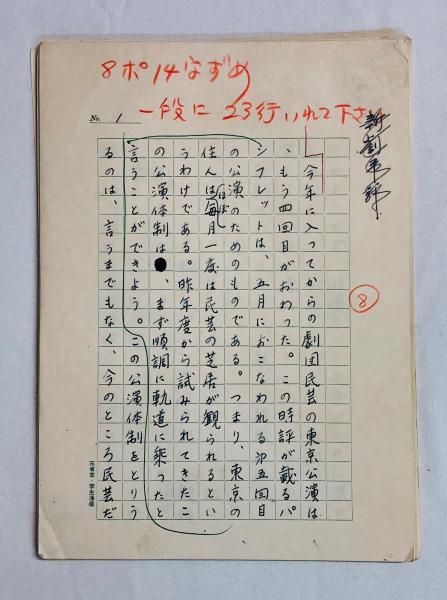 8ポ14なずめ
一段に23行いれて下さ
新劇時評
No. 1
8
今年に入ってからの劇団民芸の東京公演は
、もう四回目がおわった。この時評が載るパ
ンフレットは、五月におこなわれる第五回目
の公演のためのものである。つまり、東京の
住人はほぼ毎月一度は民芸の芝居が観られるとい
うわけである。昨年度から試みられてきたこ
の公演体制は、まず順調に軌道に乗ったと
言うことができよう。この公演体制をとりう
るのは、言うまでもなく、今のところ民芸だ